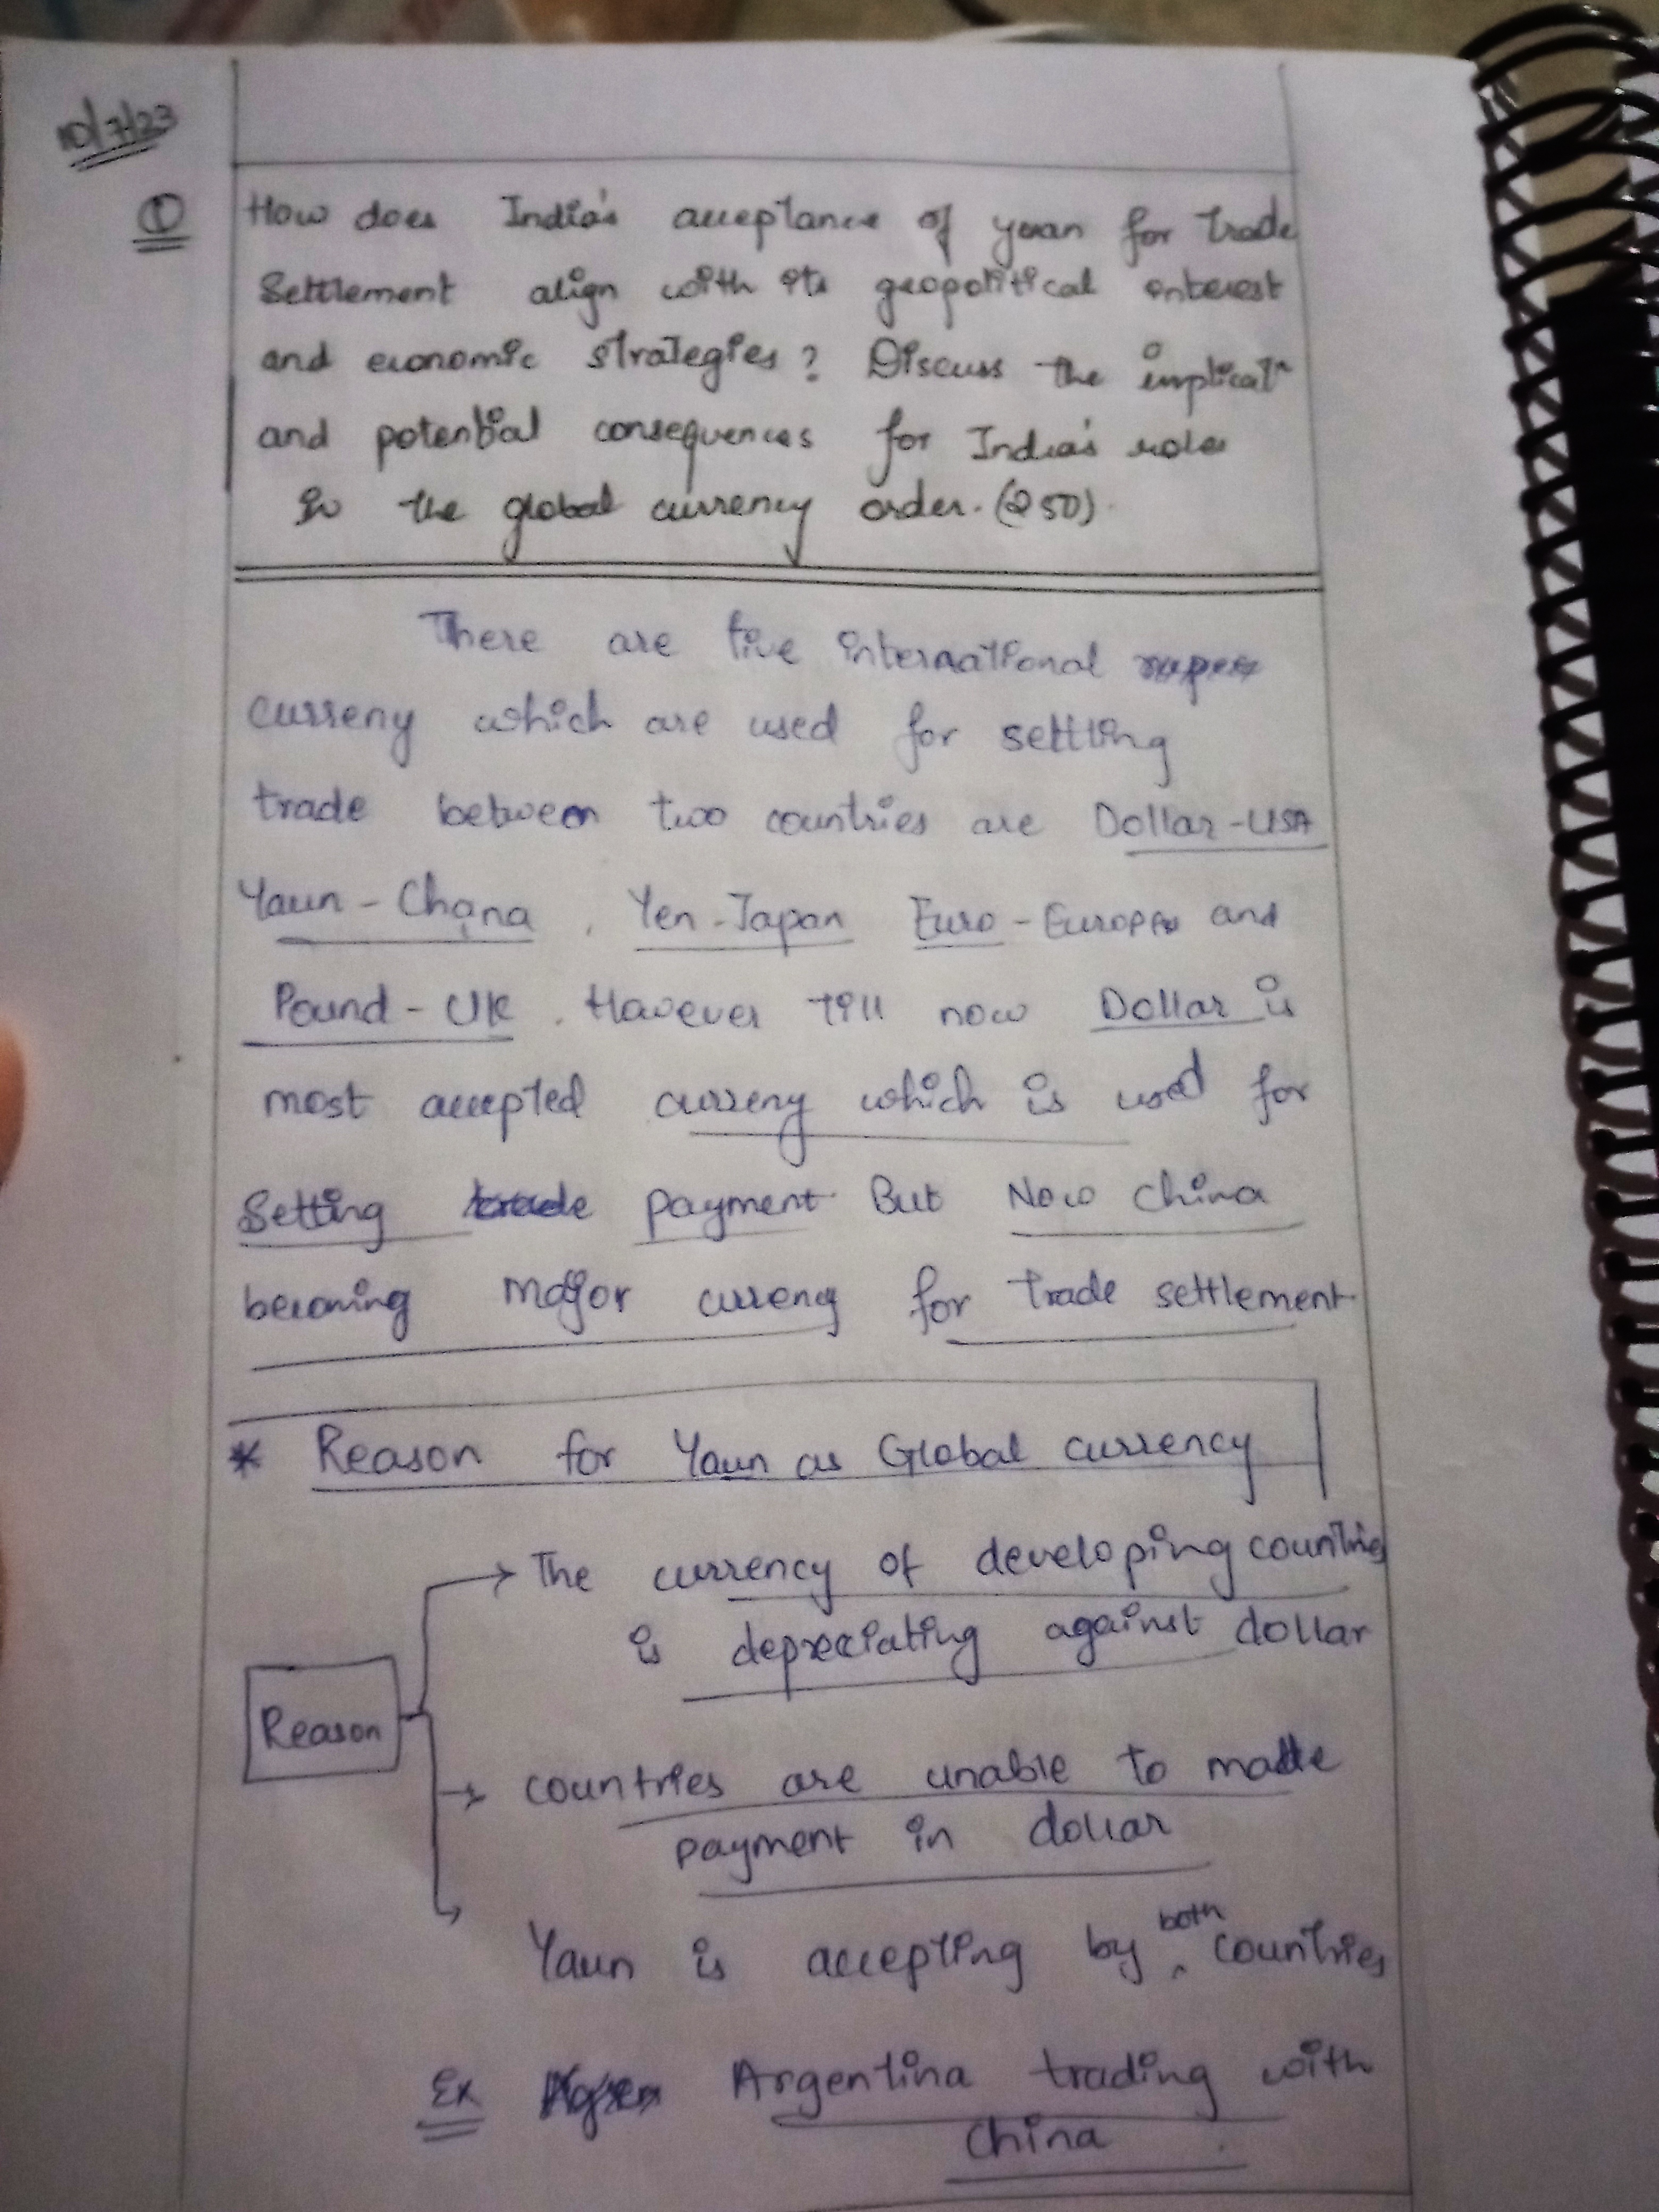 10/7/23
① How does India's acceptance of yuan for trade
Settlement align with its geopolitical interest
and economic strategies? Discuss the implicatn
and potential consequences for India's role
in the global currency order. (250).
There are five international
curreny which are used for settling
trade between two countries are Dollar-USA
Yaun - China, Yen-Japan Euro-Europe and
Pound-UK. However till now Dollar is
most accepted curreny which is used for
Setting trade payment But Now China
becoming major curreny for trade settlement
* Reason for Yaun as Global currency
→ The currency of developing countries
is depreciating against dollar
Reason
→ countries are unable to make
payment in dollar
Yaun is accepting by both countries
Ex Argentina trading with
China